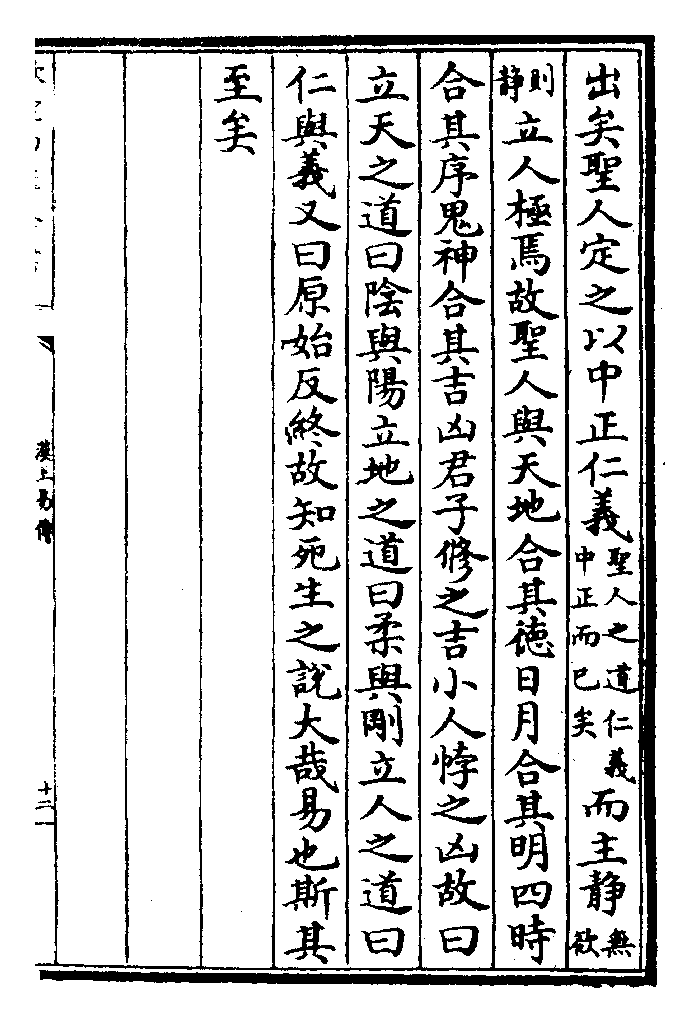 出矣聖人定之以中正仁義聖人之道仁義中正而已矣而主静無欲
則静立人極焉故聖人與天地合其徳日月合其明四時
合其序鬼神合其吉凶君子修之吉小人悖之凶故曰
立天之道曰陰與陽立地之道曰柔與剛立人之道曰
仁與義又曰原始反終故知死生之說大哉易也斯其
至矣
漢上易傳
十二